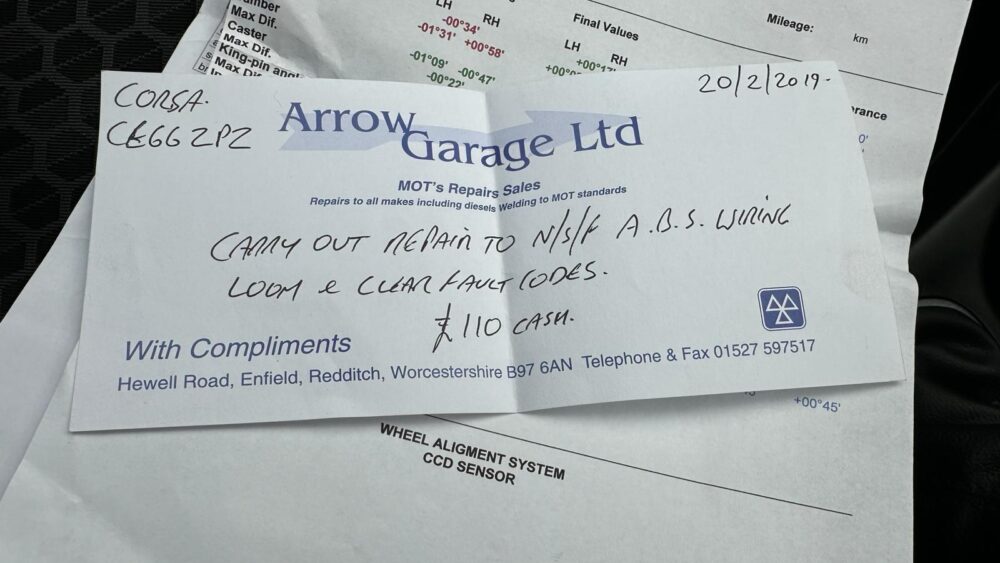 Max Dif.
Caster
Max Dif.
Max
LH RH
-00°34'
-01°31' +00°58'
-01°09' -00°47'
-00°22'
Final Values
LH RH
Mileage: km
CORSA.
CE66 ZPZ
20/2/2019-
Arrow
Garage Ltd
MOT's Repairs Sales
Repairs to all makes including diesels Welding to MOT standards
CARRY OUT REPAIR TO N/S/F A.B.S. WIRING
LOOM & CLEAR FAULT CODES.
£110 CASH.
With Compliments
Hewell Road, Enfield, Redditch, Worcestershire B97 6AN Telephone & Fax 01527 597517
+00°45'
WHEEL ALIGMENT SYSTEM
CCD SENSOR